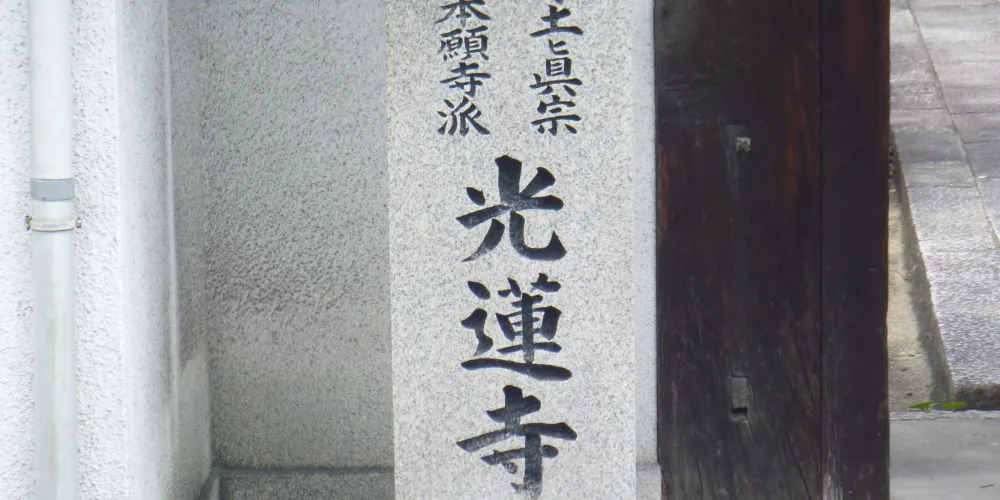 土眞宗
本願寺派
光蓮寺